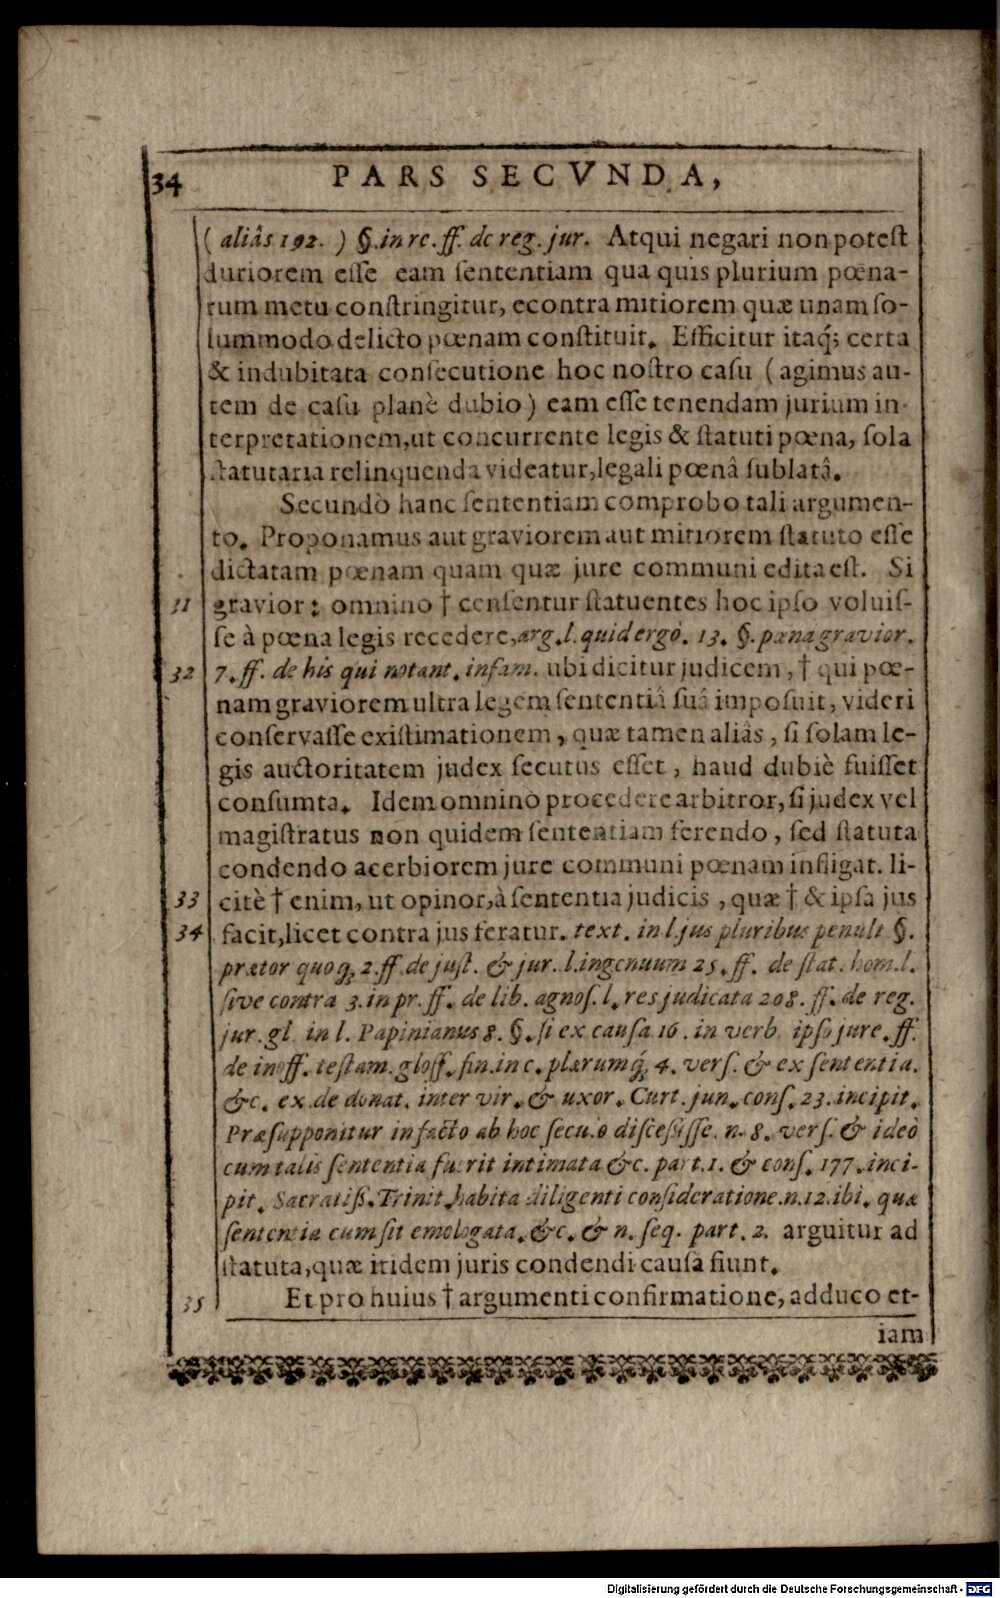 34
PARS SECVNDA,
( aliâs 192. ) §. in re. ff. de reg. jur. Atqui negari non poteſt
duriorem eſſe eam ſententiam qua quis plurium pœna-
rum metu conſtringitur, econtra mitiorem quæ unam ſo-
lummodo delicto pœnam conſtituit. Efficitur itaq́; certa
& indubitata conſecutione hoc noſtro caſu ( agimus au-
tem de caſu planè dubio ) eam eſſe tenendam jurium in-
terpretationem, ut concurrente legis & ſtatuti pœna, ſola
ſtatutaria relinquenda videatur, legali pœnâ ſublatâ.
Secundò hanc ſententiam comprobo tali argumen-
to. Proponamus aut graviorem aut mitiorem ſtatuto eſſe
dictatam pœnam quam quæ jure communi edita eſt. Si
31 gravior: omnino † cenſentur ſtatuentes hoc ipſo voluiſ-
ſe à pœna legis recedere, arg. l. quid ergò. 13. §. pœna gravior.
32 7. ff. de his qui notant. infam. ubi dicitur judicem, † qui pœ-
nam graviorem ultra legem ſententiâ ſuâ impoſuit, videri
conſervaſſe exiſtimationem, quæ tamen aliâs, ſi ſolam le-
gis auctoritatem judex ſecutus eſſet, haud dubiè fuiſſet
conſumta. Idem omninò procedere arbitror, ſi judex vel
magiſtratus non quidem ſententiam ferendo, ſed ſtatuta
condendo acerbiorem jure communi pœnam infligat. li-
33 citè † enim, ut opinor, à ſententia judicis, quæ † & ipſa jus
34 facit, licet contra jus feratur. text. in l. jus pluribus penult §.
prætor quoq; 2. ff. de juſt. & jur. l. ingenuum 25. ff. de ſtat. hom. l.
ſive contra 3. in pr. ff. de lib. agnoſ. l. res judicata 208. ff. de reg.
jur. gl. in l. Papinianus 8. §. ſi ex cauſa 16. in verb. ipſo jure. ff.
de inoff. teſtam. gloſſ. fin. in c. plærumq́; 4. verſ. & ex ſententia.
&c. ex. de donat. inter vir. & uxor. Curt. jun. conſ. 23. incipit.
Præſupponitur in facto ab hoc ſecu.o diſceſſiſſe. n. 8. verſ. & ideò
cum talis ſententia fuerit intimata &c. part. 1. & conſ. 177. inci-
pit. Sacratiß. Trinit. habita diligenti conſideratione. n. 12. ibi. quæ
ſententia cum ſit emologata. &c. & n. ſeq. part. 2. arguitur ad
ſtatuta, quæ itidem juris condendi cauſa fiunt.
35 Et pro huius † argumenti confirmatione, adduco et-
iam
Digitalisierung gefördert durch die Deutsche Forschungsgemeinschaft - DFG